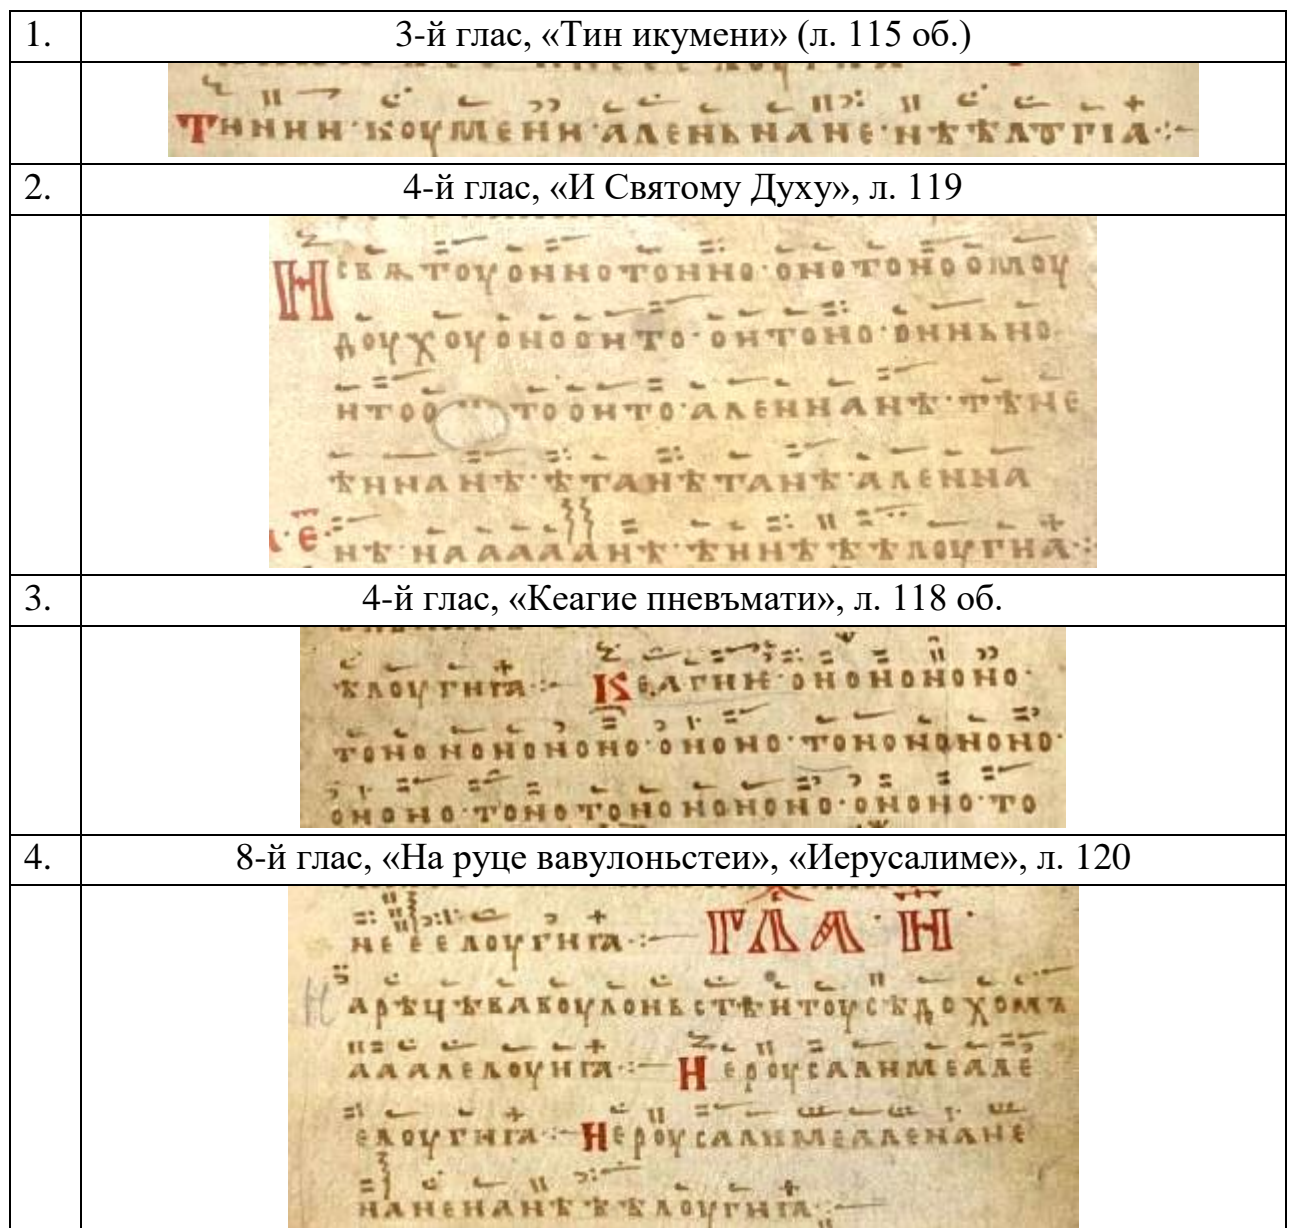 1. 3-й глас, «Тин икумени» (л. 115 об.)
Тнннн·коумени·аленьнане·нѣѣлꙋгіа·:-
2. 4-й глас, «И Святому Духу», л. 119
Нсвѧтоуоннотонно·онотоноомоу
доухоуоноонто·онтоно·онньно·
тоонто·аленнанѣ·тѣне
ѣннанѣ·ѣтанѣтанѣ·аленна
нѣ·наааанѣ·ѣннѣѣѣлоугна·:
3. 4-й глас, «Кеагие пневъмати», л. 118 об.
ѣлоугнꙗ·:- Кеагие·онононono·
тонононононо·ононо·тонононононо·
ононо·тонотононононо·ононо·то
4. 8-й глас, «На руце вавулоньстеи», «Иерусалиме», л. 120
неееелоугнꙗ·:— ГЛА·Н·
арѣцѣвавоулоньстѣнтоусѣдохомъ
ааалелоугнꙗ·:— Нероусалнмеалле
елоугнꙗ·:- Нероусалнмеаленане
наненанѣѣѣлоугнꙗ·:—